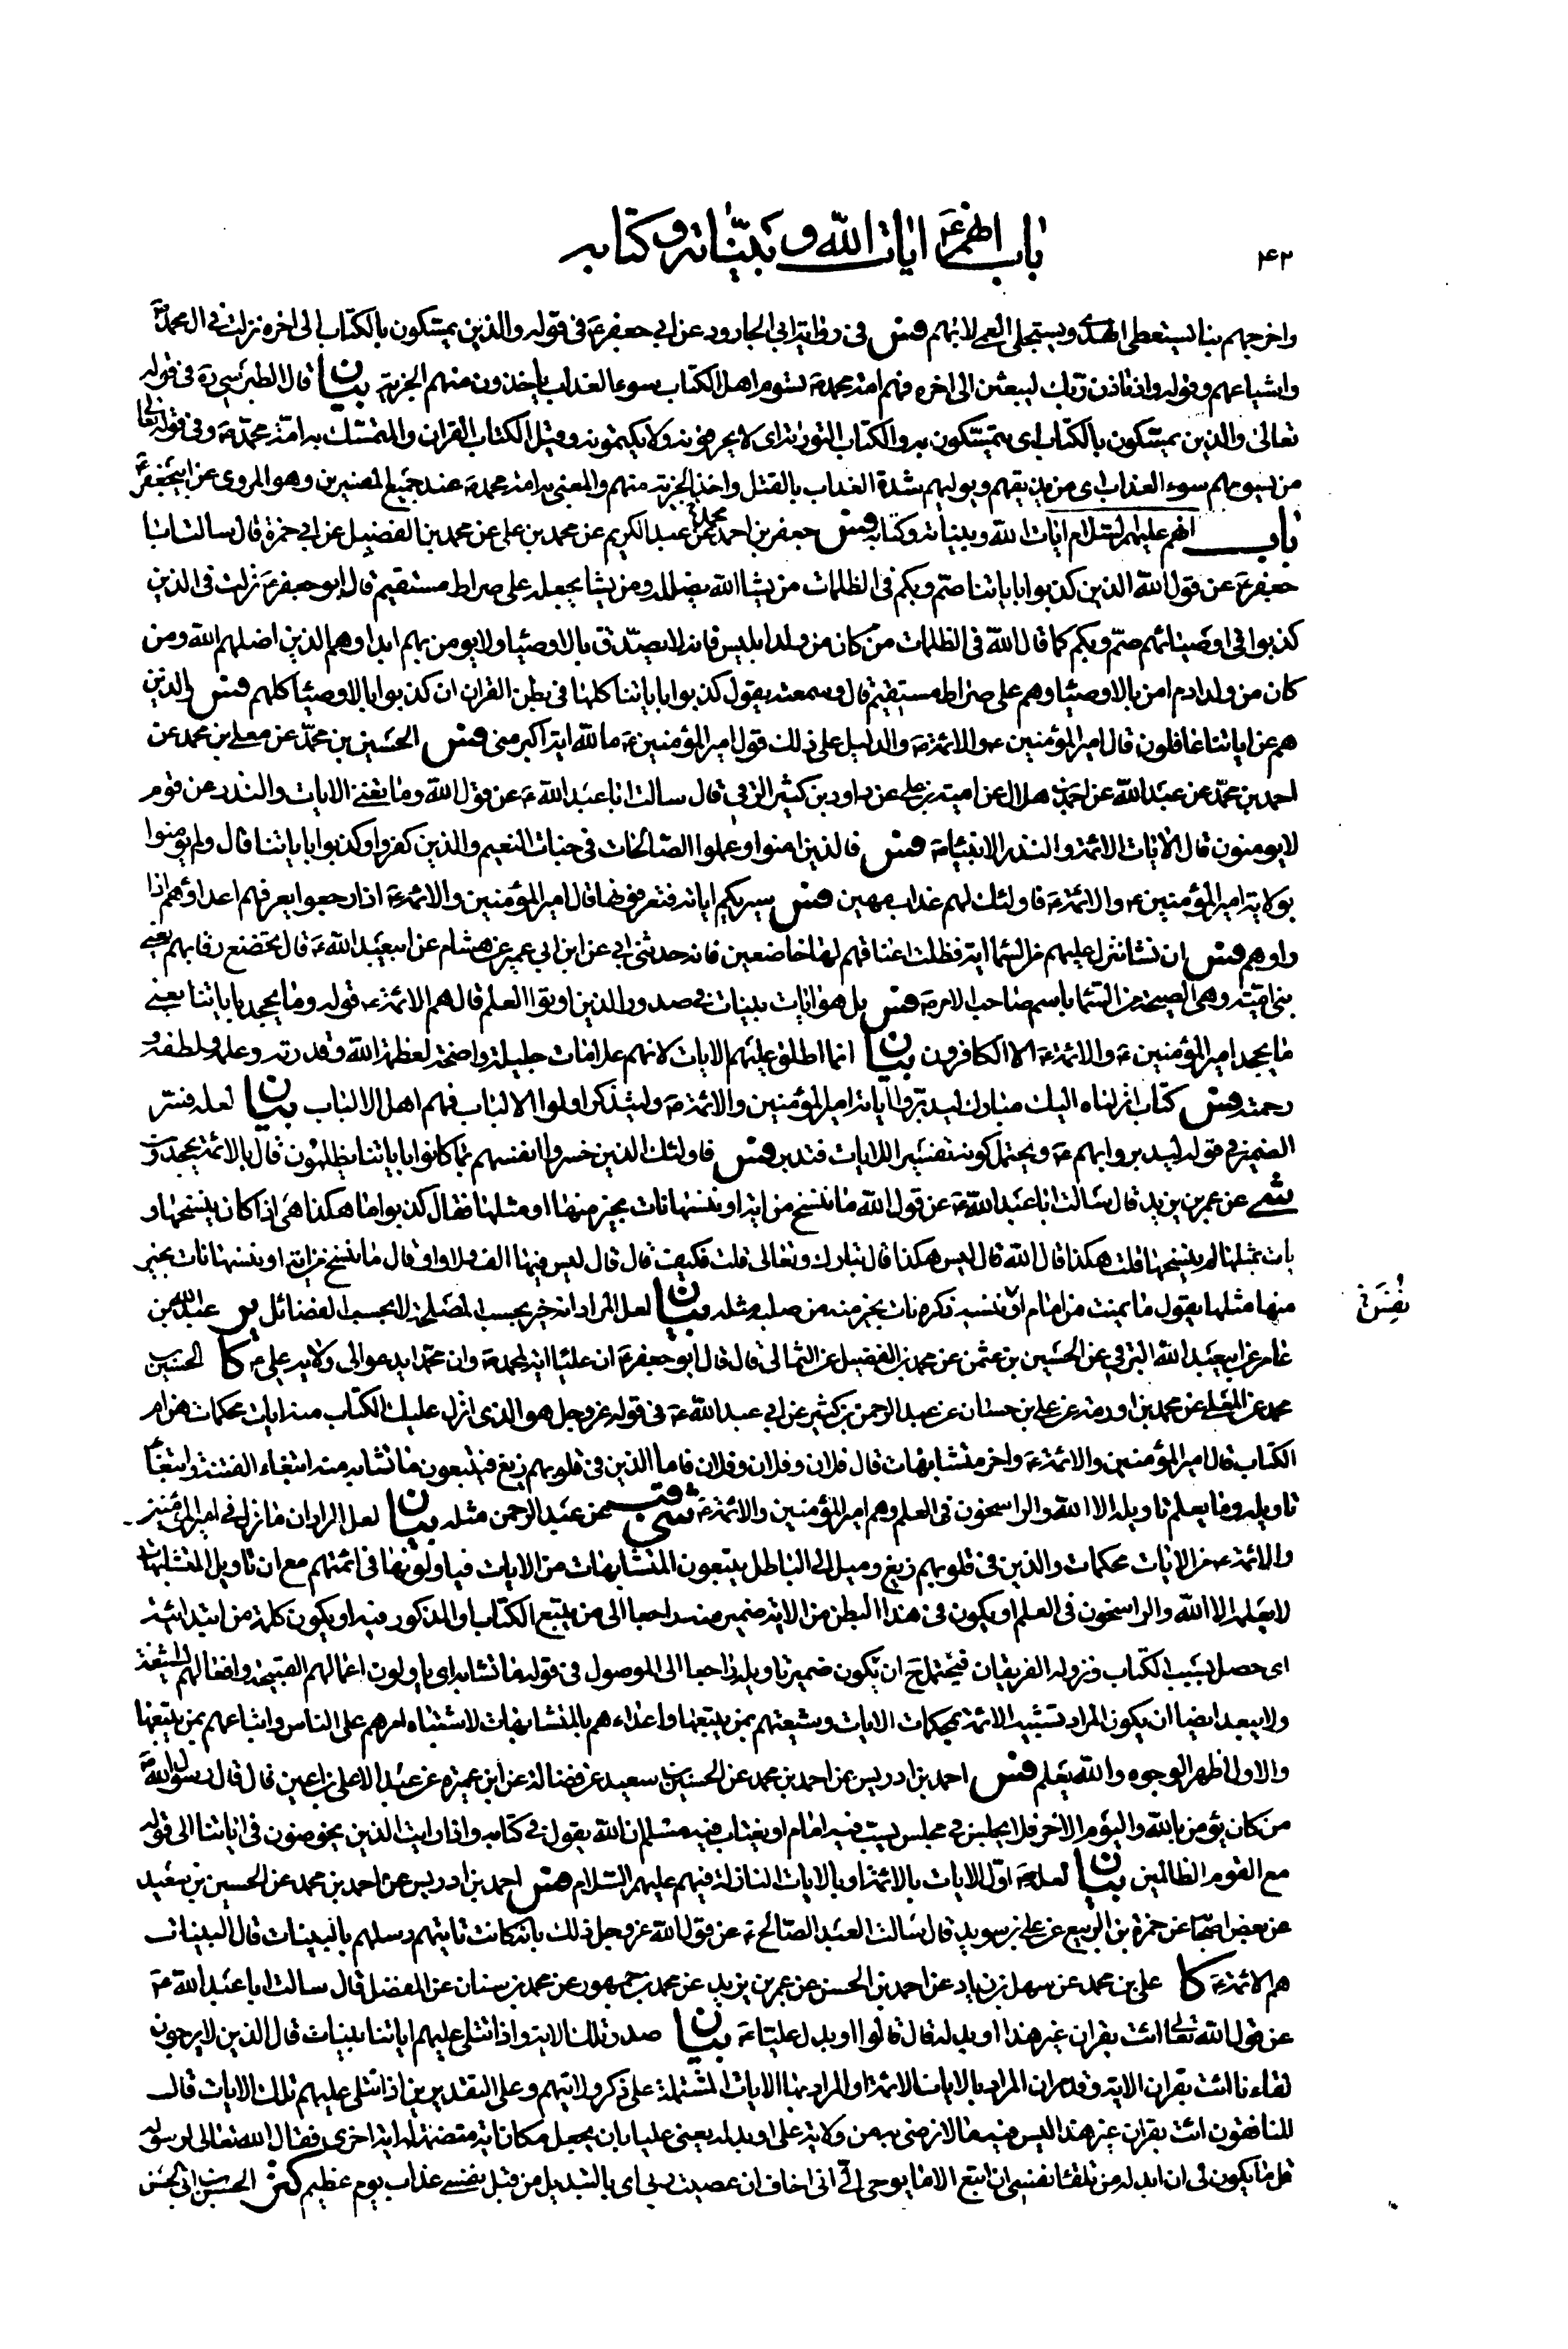 ٤٢
باب انهم ع ايات الله و بيناته و كتابه
واخرجهم بنا يستعطى الهدى ويستجلى العمى لابهم فس فى رواية ابى الجارود عن ابى جعفر ع فى قوله والذين يمسكون بالكتاب الى اخره نزلت فى ال محمد ص
واشياعهم وقوله واذ تاذن ربك ليبعثن الى اخره فهم امة محمد ص تسوم اهل الكتاب سوء العذاب ياخذون منهم الجزية بيان قال الطبرسى ره فى قوله
تعالى والذين يمسكون بالكتاب اى يتمسكون به والكتاب التورية اى لا يحرفونه ولا يكتمونه وقيل الكتاب القران والمتمسك به امة محمد ص وفى قوله تعالى
من يسومهم سوء العذاب اى من يذيقهم ويوليهم شدة العذاب بالقتل واخذ الجزية منهم والمعنى به امة محمد ص عند جميع المفسرين وهو المروى عن ابيجعفر ع
باب انهم عليهم السلام ايات الله وبيناته وكتابه فس جعفر بن احمد عن عبد الكريم عن محمد بن على عن محمد بن الفضيل عن ابى حمزة قال سالت ابا
جعفر ع عن قول الله الذين كذبوا باياتنا صم وبكم فى الظلمات من يشا الله يضلله ومن يشا يجعله على صراط مستقيم قال ابو جعفر ع نزلت فى الذين
كذبوا فى اوصيائهم صم وبكم كما قال الله فى الظلمات من كان من ولد ابليس فانه لا يصدق بالاوصياء ولا يومن بهم ابدا وهم الذين اضلهم الله ومن
كان من ولد ادم امن بالاوصياء وهم على صراط مستقيم قال وسمعته يقول كذبوا باياتنا كلها فى بطن القران ان كذبوا بالاوصياء كلهم فس والذين
هم عن اياتنا غافلون قال امير المؤمنين ع والائمة ع والدليل على ذلك قول امير المؤمنين ع ما لله اية اكبر منى فس الحسين بن محمد عن معلى بن محمد عن
احمد بن محمد عن عبد الله عن احمد بن هلال عن امية بن على عن داود بن كثير الرقى قال سالت ابا عبد الله ع عن قول الله وما تغنى الايات والنذر عن قوم
لا يومنون قال الايات الائمة والنذر الانبياء ع فس فالذين امنوا وعملوا الصالحات فى جنات النعيم والذين كفروا وكذبوا باياتنا قال ولم يومنوا
بولاية امير المؤمنين ع والائمة ع فاولئك لهم عذاب مهين فس سيريكم اياته فتعرفونها قال امير المؤمنين والائمة ع اذا رجعوا يعرفهم اعداؤهم اذا
راوهم فس ان نشا ننزل عليهم من السماء اية فظلت اعناقهم لها خاضعين فانه حدثنى ابى عن ابن ابى عمير عن هشام عن ابيعبد الله ع قال تخضع رقابهم يعنى
بنى امية وهى الصيحة من السماء باسم صاحب الامر ع فس بل هو ايات بينات فى صدور الذين اوتوا العلم قال هم الائمة ع قوله وما يجحد باياتنا يعنى
ما يجحد امير المؤمنين ع والائمة ع الا الكافرون بيان انما اطلق عليهم الايات لانهم علامات جليلة واضحة لعظمة الله وقدرته وعلمه ولطفه و
رحمته فس كتاب انزلناه اليك مبارك ليدبروا اياته امير المؤمنين والائمة ع وليتذكر اولوا الالباب فهم اهل الالباب بيان لعله فسر
الضمير فى قوله ليدبروا بهم ع ويحتمل كونه تفسيرا للايات فتدبر فس فاولئك الذين خسروا انفسهم بما كانوا باياتنا يظلمون قال بالائمة يجحدون
شى عن عمر بن يزيد قال سالت ابا عبد الله ع عن قول الله ما ننسخ من اية او ننسها نات بخير منها او مثلها فقال كذبوا ما هكذا هى اذا كان ينسخها و
يات بمثلها لم ينسخها قلت هكذا قال الله قال ليس هكذا قال تبارك وتعالى قلت فكيف قال قال ليس فيها الف ولا واو قال ما ننسخ من اية او ننسها نات بخير
منها مثلها يقول ما نميت من امام او ننسه ذكره نات بخير منه من صلبه مثله بيان لعل المراد انه خير بحسب المصلحة لا بحسب الفضائل ير عبد الله بن
عامر عن ابيعبد الله البرقى عن الحسين بن عثمن عن محمد بن الفضيل عن الثمالى قال قال ابو جعفر ع ان عليا اية لمحمد ص وان محمدا يدعو الى ولاية على ع كا الحسين بن
محمد عن المعلى عن محمد بن اورمة عن على بن حسان عن عبد الرحمن بن كثير عن ابى عبد الله ع فى قوله عز وجل هو الذى انزل عليك الكتاب منه ايات محكمات هن ام
الكتاب قال امير المؤمنين والائمة ع واخر متشابهات قال فلان وفلان وفلان فاما الذين فى قلوبهم زيغ فيتبعون ما تشابه منه ابتغاء الفتنة وابتغاء
تاويله وما يعلم تاويله الا الله والراسخون فى العلم وهم امير المؤمنين والائمة ع شى قب عن عبد الرحمن مثله بيان لعل المراد ان ما نزل فى امير المؤمنين
والائمة ع من الايات محكمات والذين فى قلوبهم زيغ وميل الى الباطل يتبعون المتشابهات من الايات فياولونها فى ائمتهم مع ان تاويل المتشابهات
لا يعلمه الا الله والراسخون فى العلم او يكون فى هذا البطن من الاية ضمير منه راجعا الى من يتبع الكتاب او المذكور فيه او يكون كلمة من ابتدائية
اى حصل بسبب الكتاب ونزوله الفريقان فيحتمل ح ان يكون ضمير تاويله راجعا الى الموصول فى قوله ما تشابه اى ياولون اعمالهم القبيحة وافعالهم الشنيعة
ولا يبعد ايضا ان يكون المراد تشبيه الائمة بمحكمات الايات وشيعتهم بمن يتبعها واعداءهم بالمتشابهات لاشتباه امرهم على الناس واتباعهم بمن يتبعها
والاول اظهر الوجوه والله يعلم فس احمد بن ادريس عن احمد بن محمد عن الحسين بن سعيد عن فضالة عن ابن عميرة عن عبد الاعلى بن اعين قال قال رسول الله ص
من كان يؤمن بالله واليوم الاخر فلا يجلس فى مجلس يسب فيه امام او يغتاب فيه مسلم ان الله يقول فى كتابه واذا رايت الذين يخوضون فى اياتنا الى قوله
مع القوم الظالمين بيان لعله ع اول الايات بالائمة او بالايات النازلة فيهم عليهم السلام فس احمد بن ادريس عن احمد بن محمد عن الحسين بن سعيد
عن بعض اصحابنا عن حمزة بن الربيع عن على بن سويد قال سالت العبد الصالح ع عن قول الله عز وجل ذلك بانه كانت تاتيهم رسلهم بالبينات قال البينات
هم الائمة ع كا على بن محمد عن سهل بن زياد عن احمد بن الحسن عن عمر بن يزيد عن محمد بن جمهور عن محمد بن سنان عن المفضل قال سالت ابا عبد الله ع
عن قول الله تعالى ائت بقران غير هذا او بدله قال قالوا او بدل عليا ع بيان صدر تلك الاية واذا تتلى عليهم اياتنا بينات قال الذين لا يرجون
لقاءنا ائت بقران الاية وقد مر ان المراد بالايات الائمة او المراد بها الايات المشتملة على ذكر ولايتهم وعلى التقديرين اذا تتلى عليهم تلك الايات قال
المنافقون ائت بقران غير هذا ليس فيه ما لا نرضى به من ولاية على او بدله يعنى عليا بان يجعل مكان اية متضمنة له اية اخرى فقال الله تعالى لرسوله
قل ما يكون لى ان ابدله من تلقاء نفسى ان اتبع الا ما يوحى الى انى اخاف ان عصيت ربى اى بالتبديل من قبل نفسى عذاب يوم عظيم كنز الحسين بن ابى الحسن